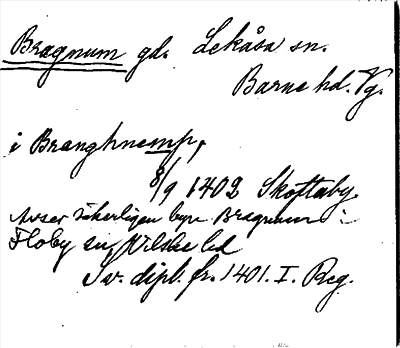 Bragnum gd. Lekåsa sn.
Barne hd. Vg.
i Branghnemp,
8/9 1402 Skoftaby.
Avser säkerligen byn Bragnum i
Floby sn, Vilske hd
Sv. dipl. fr. 1401. I. Reg.